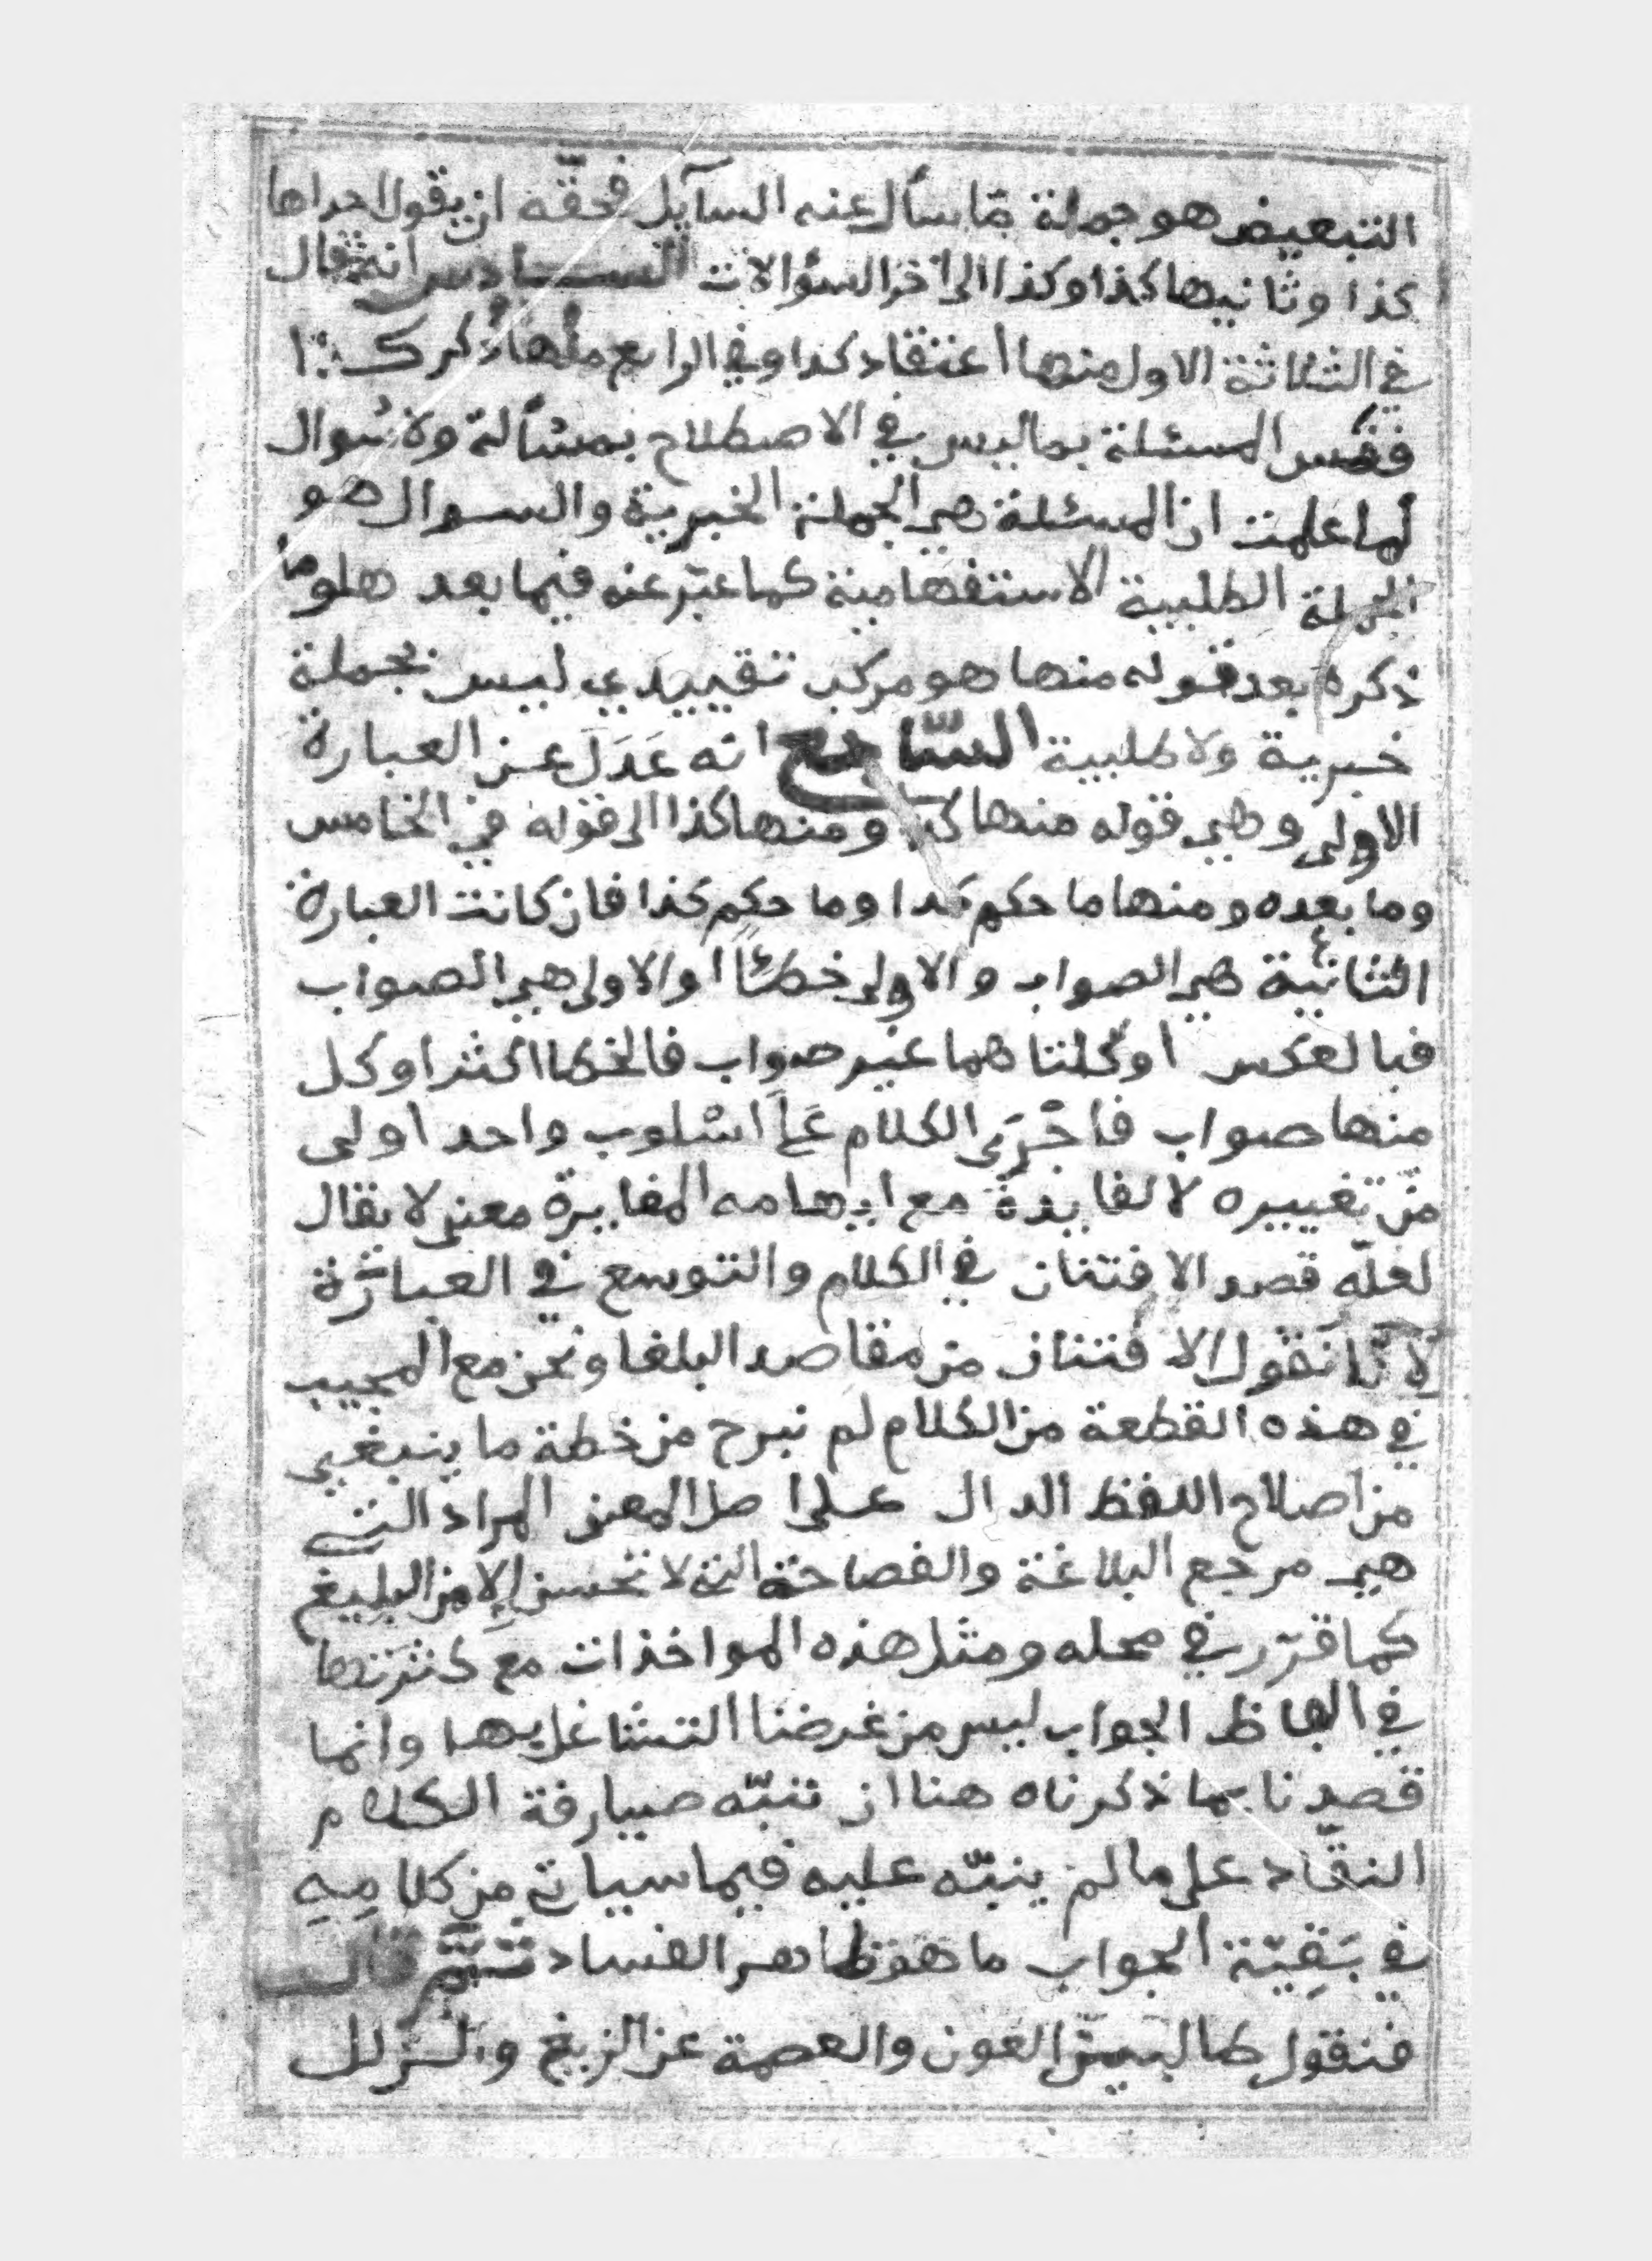 التبعيض هو جملة مما سأل عنه السآيل فحقّه ان يقول احداها
كذا وثانيها كذا وكذا الى اخر السؤالات السادس انه قال
في الثلاثة الاول منها اعتقاد كذا وفي الرابع منها ذكر كذا
ففسر المسئلة بما ليس في الاصطلاح بمسألة ولا سُوال
لما علمت ان المسئلة هي الجملة الخبرية والسوال هو
الجملة الطلبية الاستفهامية كما عبّر عنه فيما بعد هلو ما
ذكره بعد قوله منها هو مركب تقييدي ليس بجملة
خبرية ولا طلبية السّابع انه عَدَلَ عن العبارة
الاولى وهي قوله منها كذا ومنها كذا الى قوله في الخامس
وما بعده ومنها ما حكم كذا وما حكم كذا فان كانت العبارة
الثانية هي الصواب والاولى خطئًا او الاولى هي الصواب
فبالعكس او كلتاهما غير صواب فالخطا اكثر او كل
منها صواب فاجْرَى الكلام عَلَى اسْلوب واحد اولى
من تغييره لا لفايدة مع ايهامه المغايرة معنى لا يقال
لعلّه قصد الافتنان في الكلام والتوسع في العبارة
لانّا نقول الافتنان من مقاصد البلغا ونحن مع المجيب
في هذه القطعة من الكلام لم نبرح من خطة ما ينبغي
من اصلاح اللفظ الدال على اصل المعنى المراد التي
هي مرجع البلاغة والفصاحة التي لا تحسن إلا من البليغ
كما قرّر في محله ومثل هذه المواخذات مع كثرتها
في الفاظ الجواب ليس من غرضنا التشاغل بها وانما
قصدنا بما ذكرناه هنا ان تنبّه صيارفة الكلام
النقّاد على ما لم ينبّه عليه فيما سياتي من كلامِهِ
في بَقِيّة الجواب ما هو ظاهر الفساد ثم قال
فنقول طالبين العون والعصمة عن الزيغ والزلل